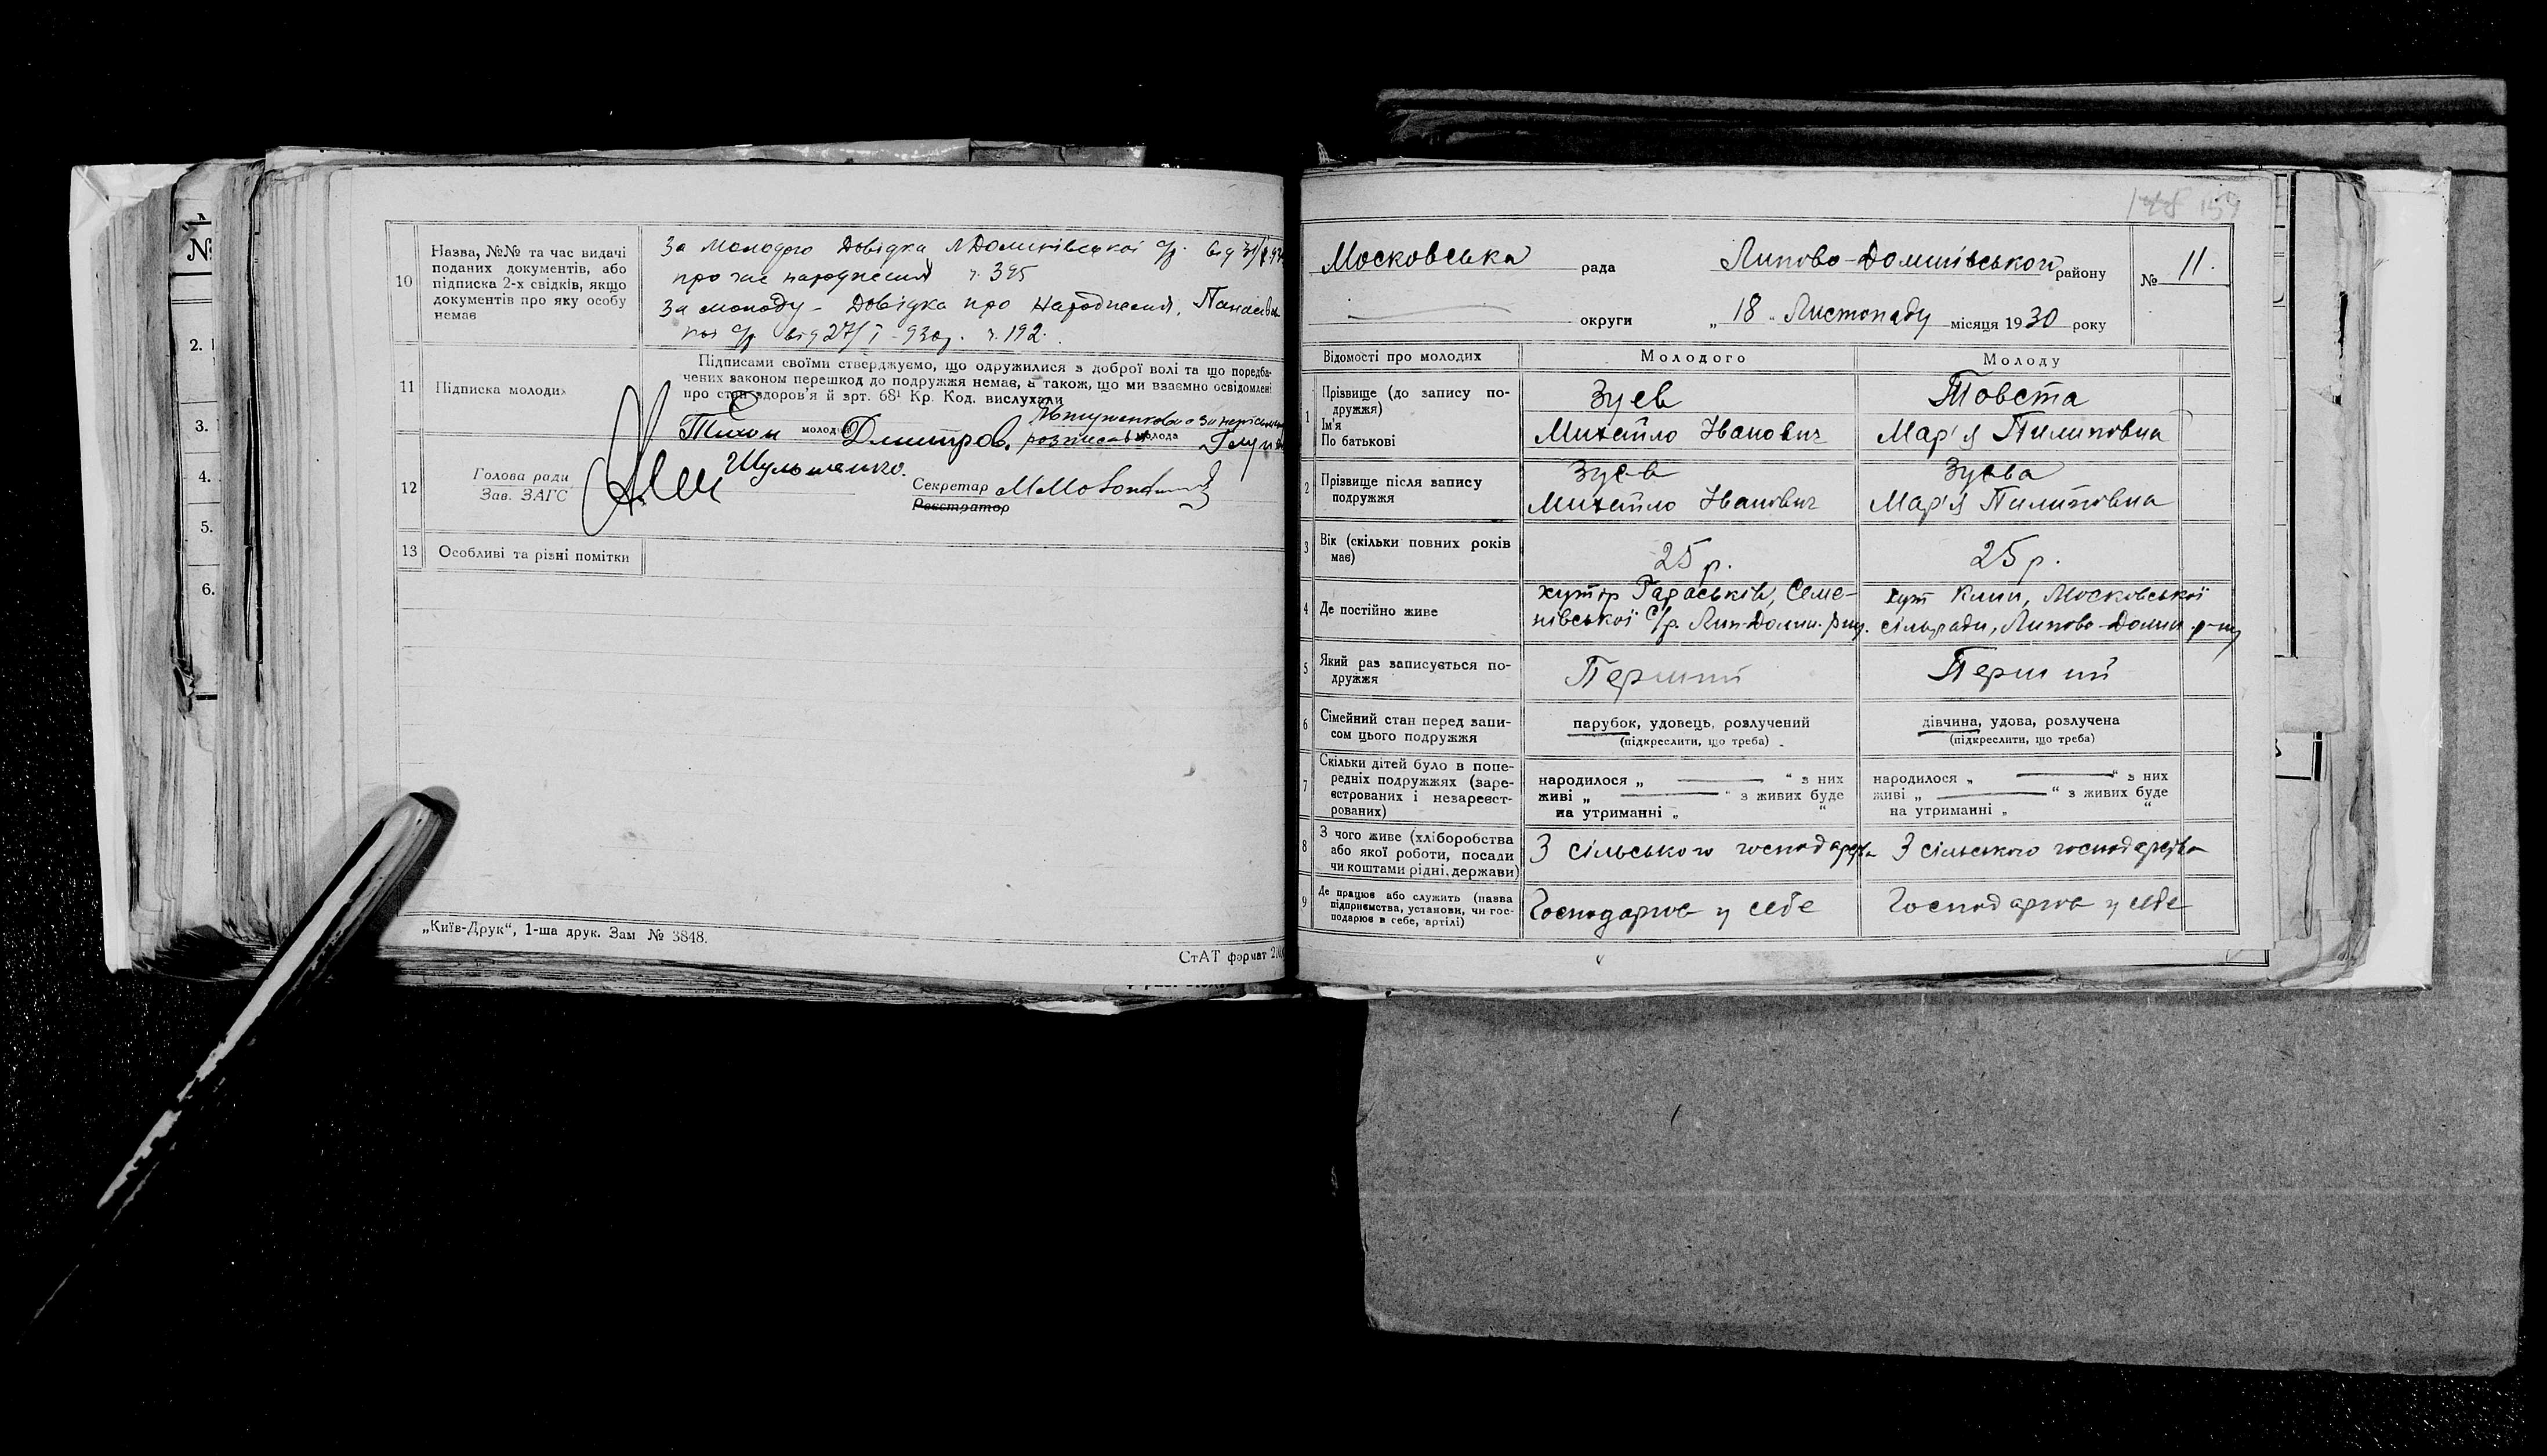 10
Назва, №№ та час видачі
поданих документів, або
підписка 2-х свідків, якщо
документів про яку особу
немає
За молодого Довідка Л Долинівської с/р. від 31/
про час народження ч. 395
За молоду – Довідка про народження,
кої с/р від 27/I – 930р. ч. 192.
11
Підписка молодих
Підписами своїми стверджуємо, що одружилися з доброї волі та що поредба-
чених законом перешкод до подружжя немає, а також, що ми взаємно освідомлені
про стан здоров'я й арт. 68¹ Кр. Код. вислухали
Тихон молодий Дмитров. розписався молода
12
Голова ради
Зав. ЗАГС
Шульженко.
Секретар
Реєстратор
13
Особливі та різні помітки
„Київ-Друк“, 1-ша друк. Зам № 3848.
СтАТ формат
№
2.
3.
4.
5.
6.
Московська рада Липово-Долинівського району № 11.
округи „ 18 „ Листопаду місяця 1930 року
Відомості про молодих
Молодого
Молоду
1
Прізвище (до запису по-
дружжя)
Ім'я
По батькові
Зуев
Михайло Іванович
Товста
Мар'я Пилиповна
2
Прізвище після запису
подружжя
Зуев
Михайло Іванович
Зуева
Мар'я Пилиповна
3
Вік (скільки повних років
має)
25 р.
25 р.
4
Де постійно живе
хутір Гараськів, Семе-
нівської с/р. Лип-Долин. р-ну.
хут Кими, Московської
сільради, Липово-Долин. р-ну
5
Який раз записується по-
дружжя
Перший
Перший
6
Сімейний стан перед запи-
сом цього подружжя
парубок, удовець, розлучений
(підкреслити, що треба)
дівчина, удова, розлучена
(підкреслити, що треба)
7
Скільки дітей було в попе-
редніх подружжях (заре-
єстрованих і незареєст-
рованих)
народилося „ — “ з них
живі „ — “ з живих буде
на утриманні „ “
народилося „ — “ з них
живі „ — “ з живих буде
на утриманні „ “
8
З чого живе (хліборобства
або якої роботи, посади
чи коштами рідні, держави)
З сільського господарства
З сільського господарства
9
Де працює або служить (назва
підприємства, установи, чи гос-
подарює в себе, артілі)
Господарює у себе
Господарює у себе